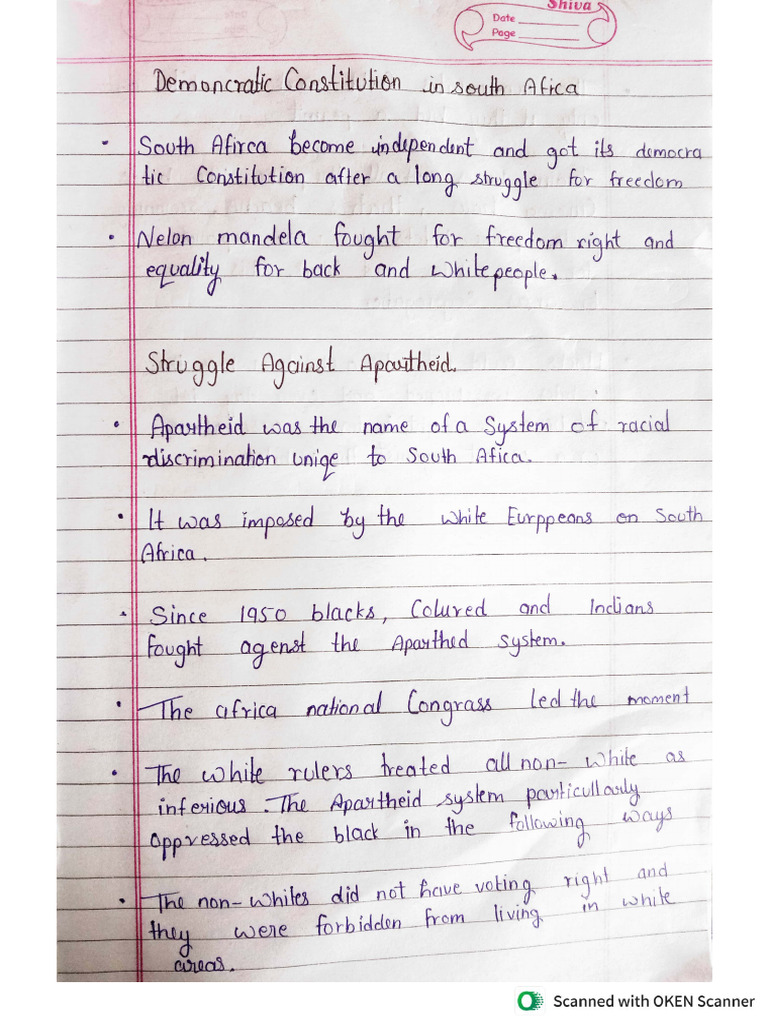 Shiva
Date
Page
Demoncratic Constitution in south Africa
• South Afirca become independent and got its democra
tic Constitution after a long struggle for freedom
• Nelon mandela fought for freedom right and
equality for back and white people.
Struggle Against Apartheid.
• Apartheid was the name of a System of racial
discrimination uniqe to South Africa.
• It was imposed by the white Eurppeons on South
Africa.
• Since 1950 blacks, Colured and Indians
fought agenst the Aparthed system.
• The africa national Congrass led the moment
• The white rulers treated all non-white as
inferious. The Apartheid system particullarly
oppressed the black in the following ways
• The non-whites did not have voting right and
they were forbidden from living in white
areas.
Scanned with OKEN Scanner